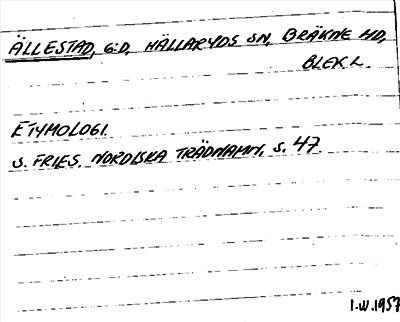 ÄLLESTAD, G:D, HÄLLARYDS SN, BRÄKNE HD,
BLEK. L.
ETYMOLOGI.
S. FRIES. NORDISKA TRÄDNAMN, S. 47
I.W. 1957